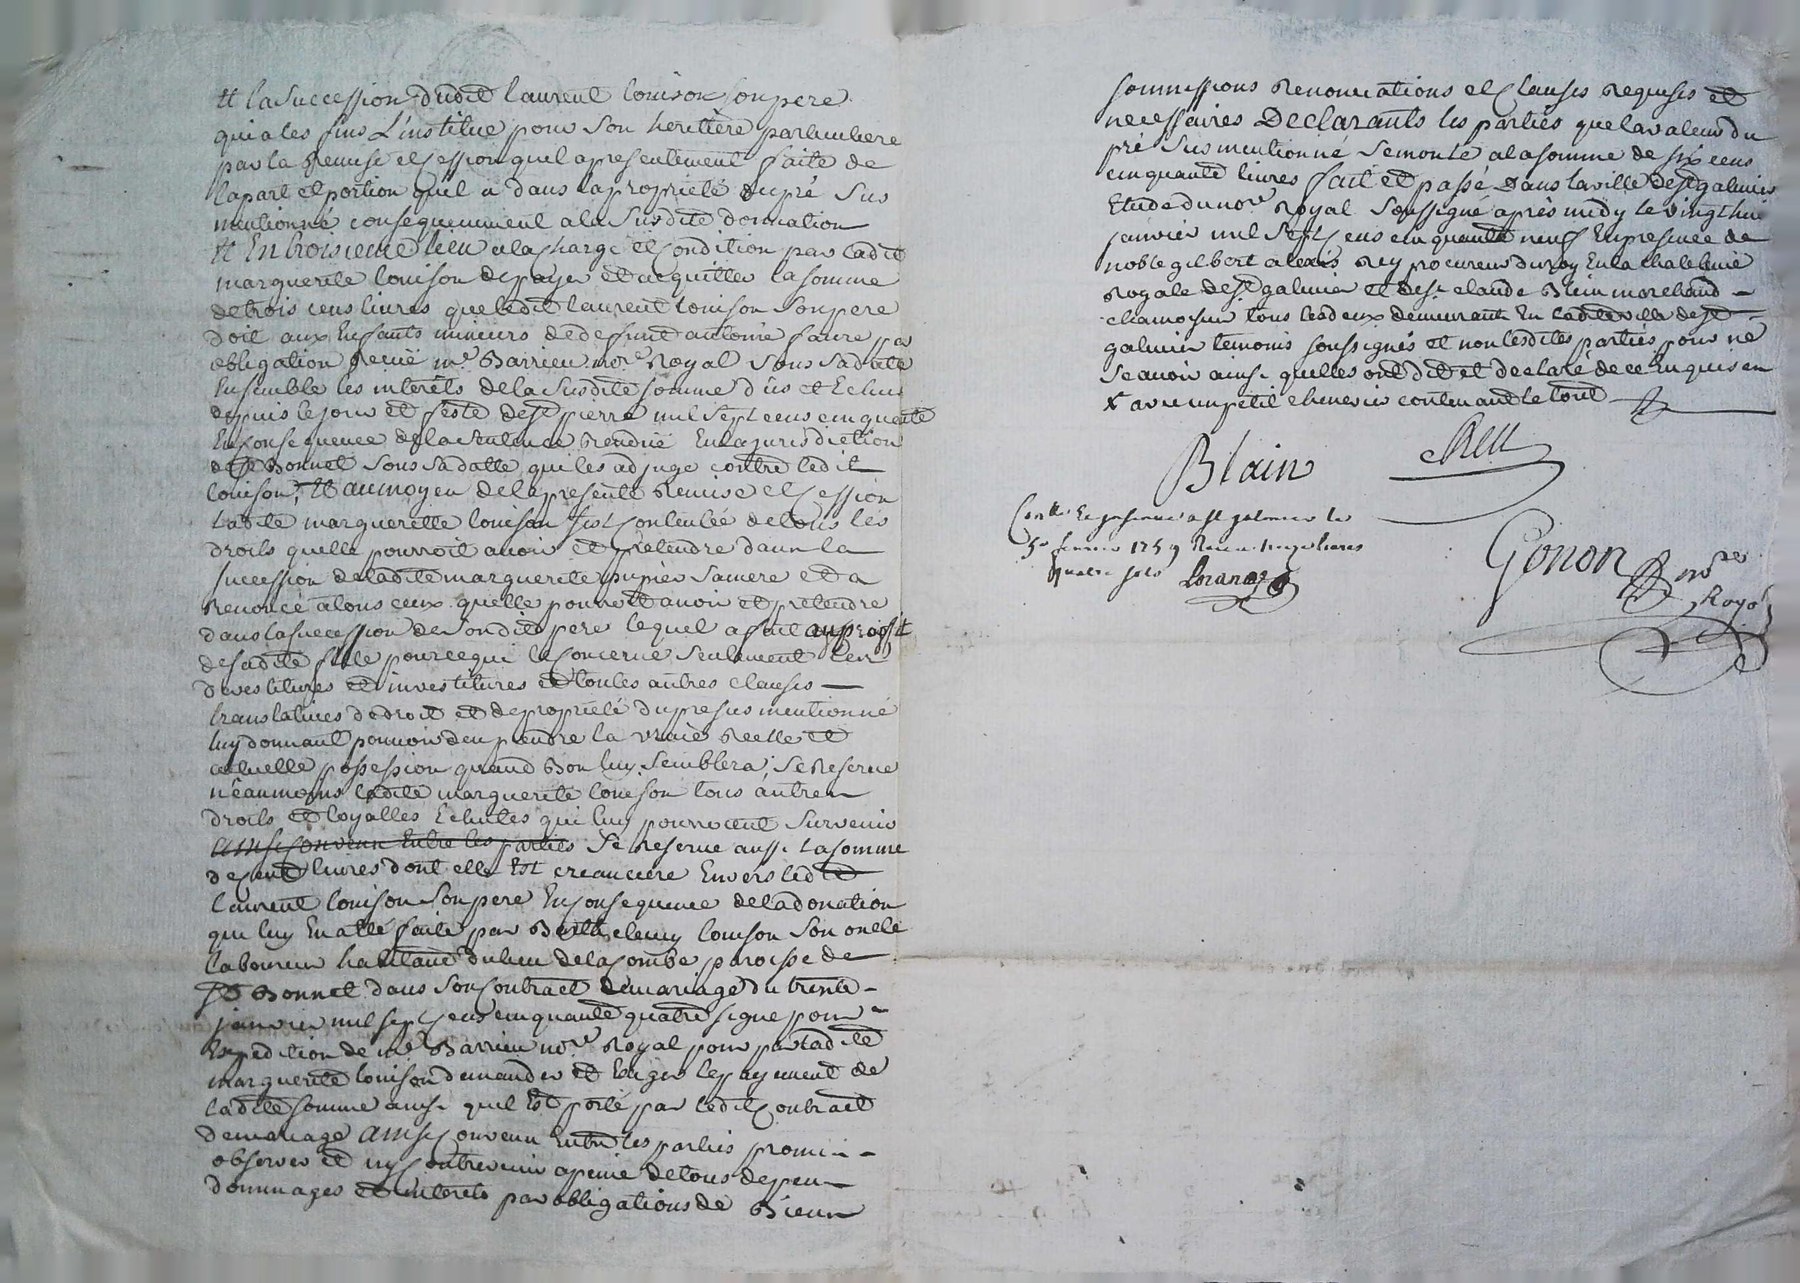 Et la succession dudit laurent louison son pere
qui a les fins L'institue pour son heritiere particuliere
par la Remise et Cession quil a presentement faite de
la part et portion quil a dans la propriete du pré sus
mentionné consequemment a la susdite donnation
Et En troisieme lieu a la charge et Condition par ladite
marguerite louison de payer et acquitter la somme
de trois cens livres que ledit laurent louison son pere
doit aux Enfants mineurs de defunt antoine faure par
obligation Recüe me Barrieu nore Royal sous sa datte
Ensemble les interêts de la susdite somme dûs et Echus
depuis le jour et feste de st pierre mil sept cens cinquante
En consequence de la sentence Rendüe En la jurisdiction
de st Bonnet sous sa datte qui les adjuge contre ledit
louison, Et au moyen de la presente Remise et Cession
ladite marguerite louison sest Contentée de tous les
droits quelle pourroit avoir et pretendre dans la
succession de ladite marguerite pupier sa mere et a
Renoncé a tous ceux quelle pourroit avoir et pretendre
dans la succession de son dit pere lequel a fait au proffit
de sadite fille pour ce qui le Concerne seulement les
devestitures et investitures et toutes autres clauses
translatives de droit et de propriete du pre sus mentionné
luy donnant pouvoir den prendre la vraie Reelle et
actuelle possession quand Bon luy semblera, se Reserve
neaumoins ladite marguerite louison tous autres
droits et loyalles Echutes qui luy pourroient survenir
ainsi Convenu Entre les parties se Reserve aussi la somme
de Cent livres dont elle Est creanciere Envers ledit
laurent louison son pere En Consequence de la donation
qui luy En a été faite par Barthelemy louison son oncle
laboureur habitant du lieu de la Combe paroisse de
st Bonnet dans son Contract de mariage du trente
janvier mil sept Cens cinquante quatre signé pour
Expedition de me Barrieu nore Royal pour par ladite
marguerite louison demander et Exiger le payement de
ladite somme ainsi quil Est porté par ledit Contract
de mariage ainsi Convenu Entre les parties promis
observer et ny Contrevenir a peine de tous depens
dommages et interets par obligations de Biens
soumissions Renonciations et Clauses Requises et
necessaires Declarants les parties que la valeur du
pré sus mentionné se monte a la somme de six cens
cinquante livres fait et passé Dans la ville de st galmier
Etude du nore Royal soussigné après midy le vingt huit
janvier mil sept Cens cinquante neuf En presence de
noble gilbert alexis Rey procureur du roy En la chatelenie
Royale de st galmier et de sr claude Blein marchand
chamoiseur tous les deux demeurant En ladite ville de st
galmier temoins soussignés et non lesdites parties pour ne
scavoir ainsi quelles ont dit et declaré de ce Enquis en
X avec un petit chenevier contenand le tout
Blain
Rey
Contllé Et a st galmier le
5e fevrier 1759 Recu livres
quatre sols
Gonon nore
Royal